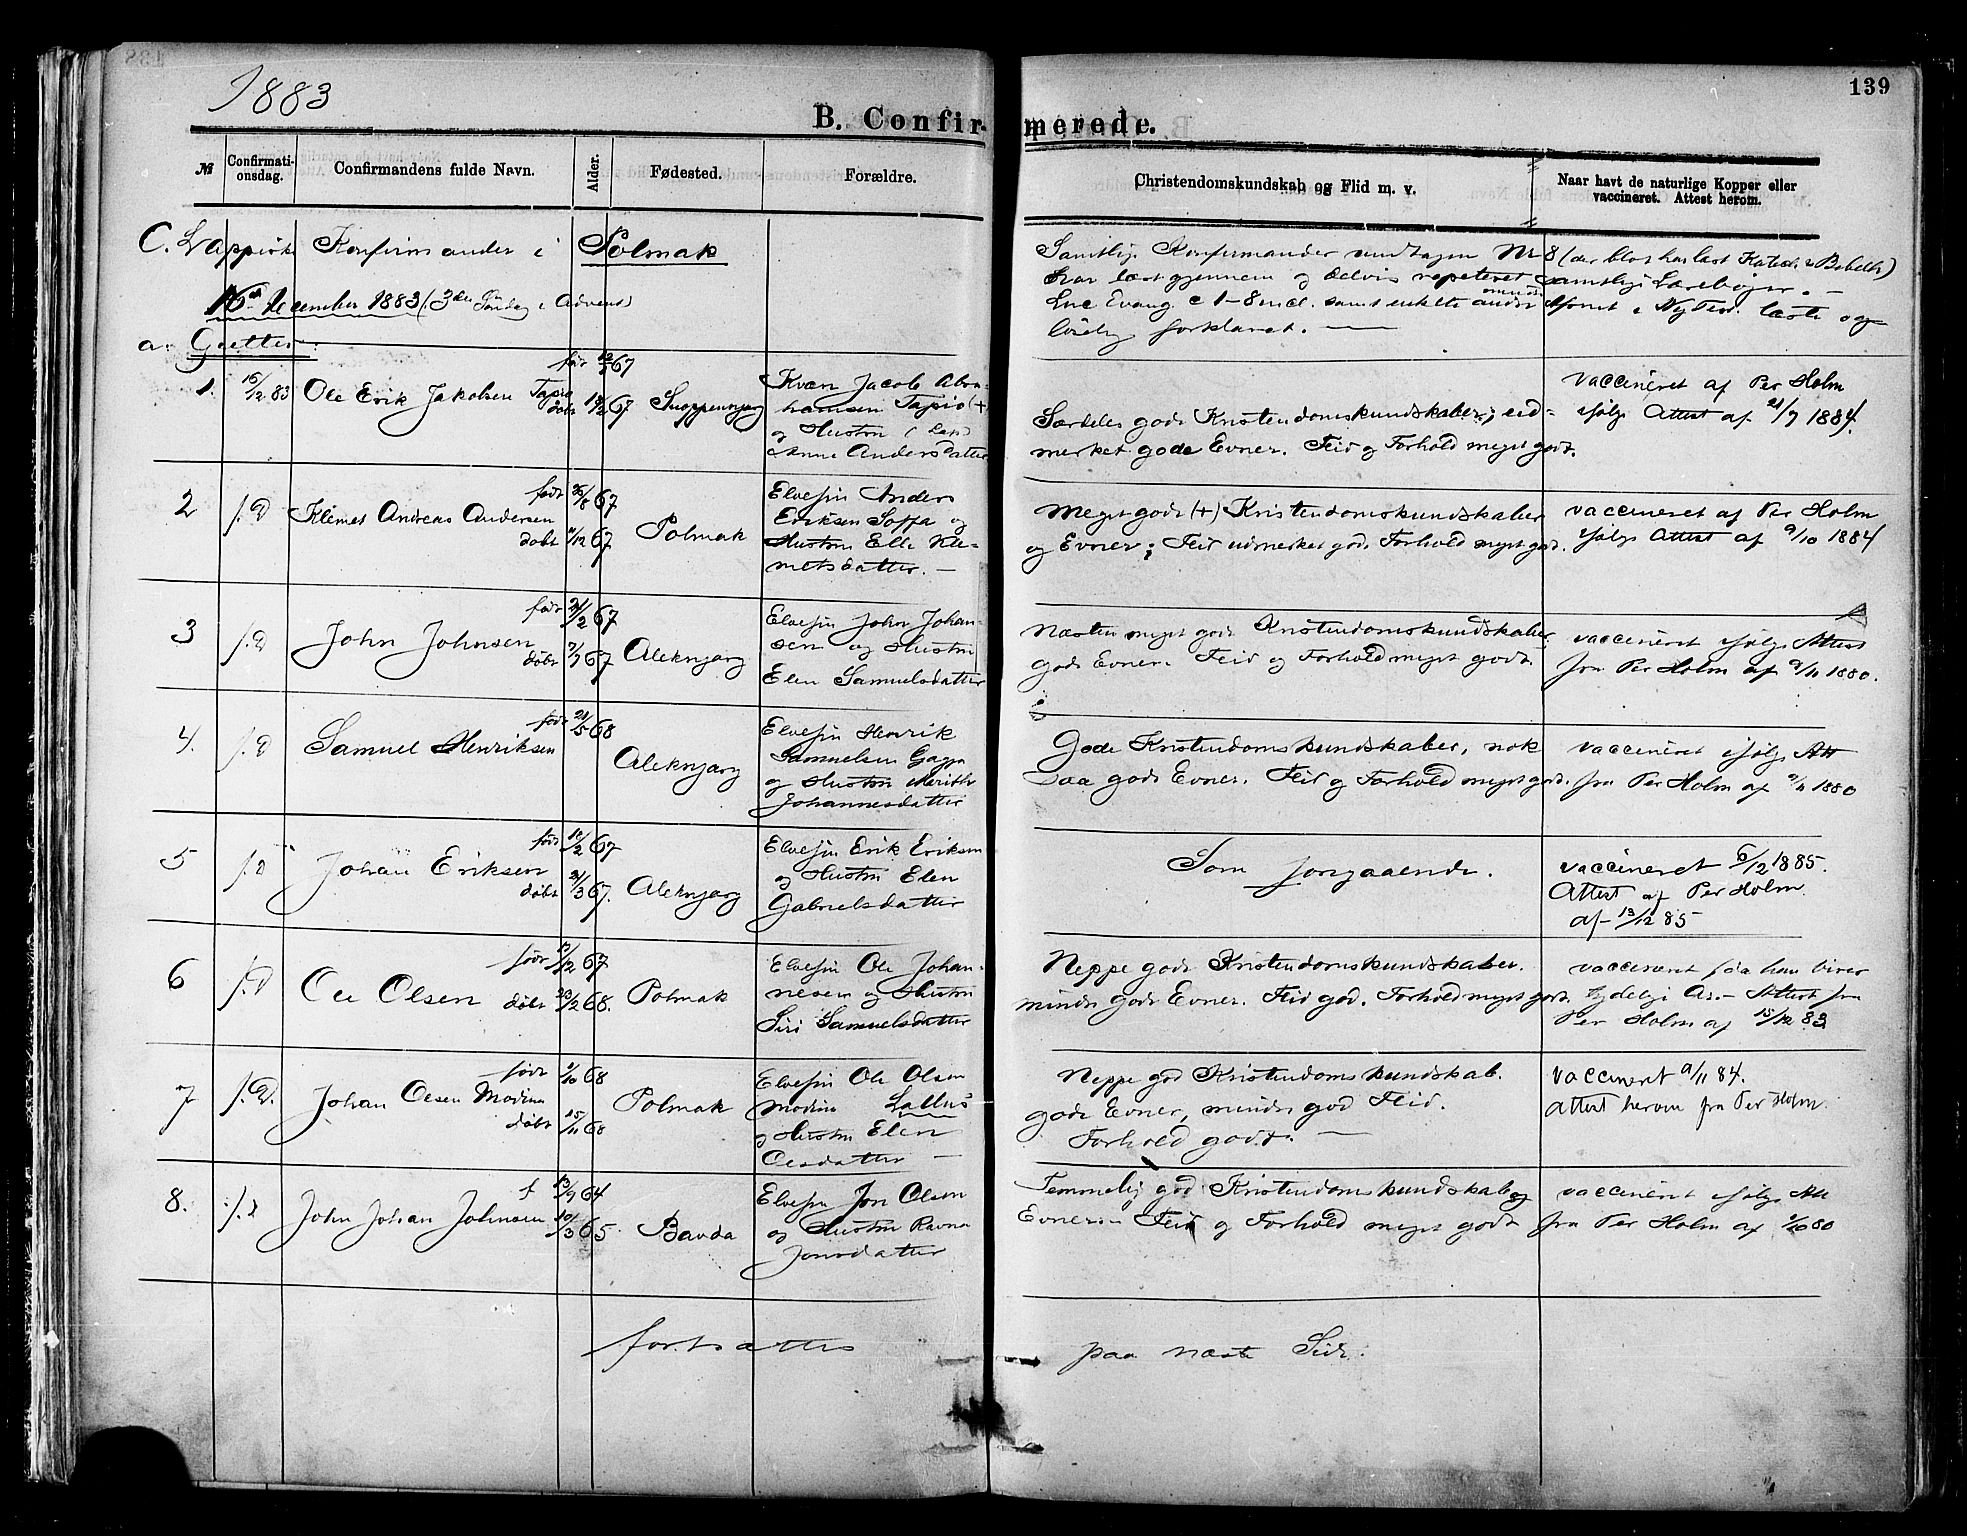 1883
139
B. Confir-merede.
№
Confirmati-
onsdag.
Confirmandens fulde Navn.
Alder.
Fødested.
Forældre.
Christendomskundskab og Flid m. v.
Naar havt de naturlige Kopper eller
vaccineret. Attest herom.
C. Lappiske Konfirmander i Polmak
16de December 1883 (3die Søndag i Advent)
a. Gutter.
Samtlige Konfirmander undtagen Nr 8 (der blot har læst Katech. & Bibelh.)
har læst gjennem og delvis repeteret samtlige Lærebøger. —
Luc Evang. c 1–8 incl. samt enkelte andre afsnit i Ny Test. læste og
løselig forklaret. —
1.
16/12 83
Ole Erik Jakobsen Tapio
født 67
døbt 67
Snoppennjarg
Kvæn Jacob Abra-
hamsen Tapio (+)
og Hustru (Lap)
Anne Andersdatter
Særdeles gode Kristendomskundskaber; ud-
merket gode Evner. Flid og Forhold meget godt.
vaccineret af Per Holm
ifølge Attest af 21/7 1884.
2
f. D
Klemet Andreas Andersen
født 67
døbt 1/12 67
Polmak
Elvefin Anders
Eriksen Soffa og
Hustru Elle Kle-
metsdatter. —
Meget gode (+) Kristendomskundskaber
og Evner; Flid udmerket god. Forhold meget god.
vaccineret af Per Holm
ifølge Attest af 9/10 1884
3
f. D
John Johnsen
født 67
døbt 7/7 67
Aleknjarg
Elvefin John Johan-
sen og Hustru
Elen Samuelsdatter
Næsten meget gode Kristendomskundskaber,
gode Evner. Flid og Forhold meget godt.
vaccineret ifølge Attest
fra Per Holm af 9/11 1880.
4.
f. D
Samuel Henriksen
født 21/5 68
Aleknjarg
Elvefin Henrik
Samuelsen Gappa
og Hustru Marith
Johannesdatter
Gode Kristendomskundskaber, nok
saa gode Evner. Flid og Forhold meget god.
vaccineret ifølge Att
fra Per Holm af 9/11 1880
5
f. D
Johan Eriksen
født 67
døbt 3 67.
Aleknjarg
Elvefin Erik Eriksen
og Hustru Elen
Gabrielsdatter
Som foregaaende.
vaccineret 6/12 1885.
Attest af Per Holm
af 13/12 85
6
f. D
Ole Olsen
født 12 67
døbt 23/2 68.
Polmak
Elvefin Ole Johan-
nesen og Hustru
Siri Samuelsdatter
Neppe gode Kristendomskundskaber.
mindre gode Evner. Flid god. Forhold meget godt.
vaccineret
tydelige Ar. — Attest fra
Per Holm af 15/12 83
7
f. D.
Johan Olsen Modina
født 10 68
døbt 15/11 68
Polmak
Elvefin Ole Olsen
Modina
og Hustru Elen
Olsdatter —
Neppe god Kristendomskundskab.
gode Evner, mindre god Flid.
Forhold godt. —
vaccineret 9/11 84.
Attest herom fra Per Holm.
8.
f. D
John Johan Johnsen
f 13/9 64
10/3 65.
Bavda
Elvefin Jon Olsen
og Hustru Ravna
Jonsdatter
Temmelig god Kristendomskundskab og
Evner. — Flid og Forhold meget godt
vaccineret ifølge Att
fra Per Holm af 80
fortsættes paa næste Side.